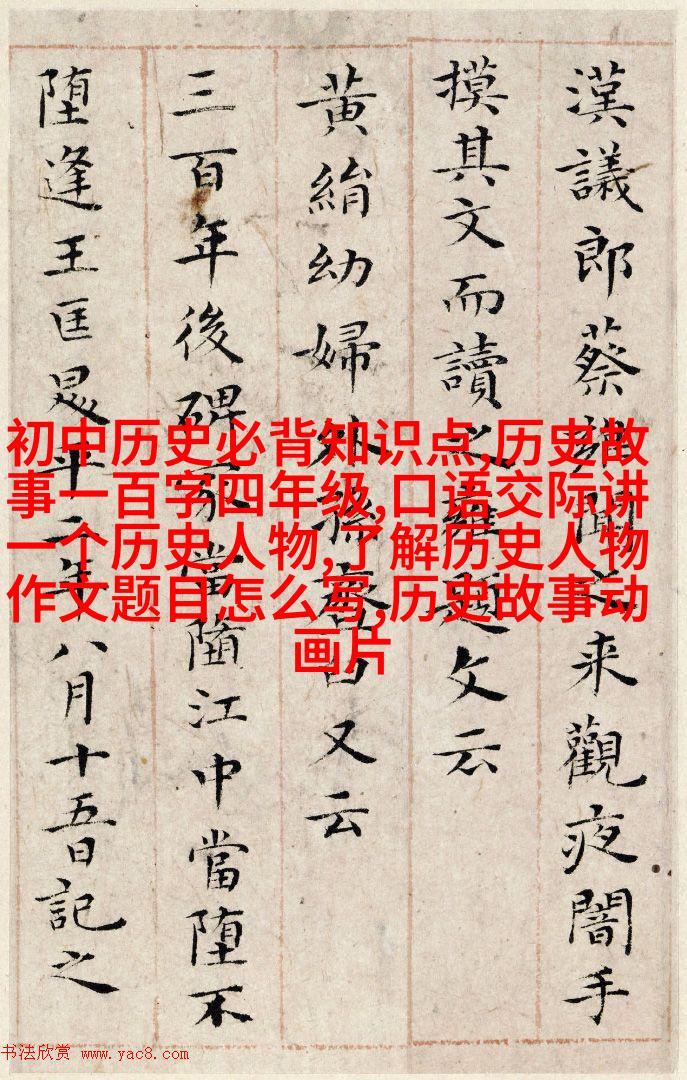 初中历史必背知识点,历史故
事一百字 四年级,口语交际讲
一个历史人物,了解历史人物
作文题目怎么写,历史故事动
画片
漢議郎蔡雍聞之来觀夜闇手
摸其文而讀之雍題文云
黄絹幼婦外孫臼又云
三百年後碑冢當墮江中當堕不
堕逢王匡昇平二年八月十五日記之
书法欣赏 www.yac8.com